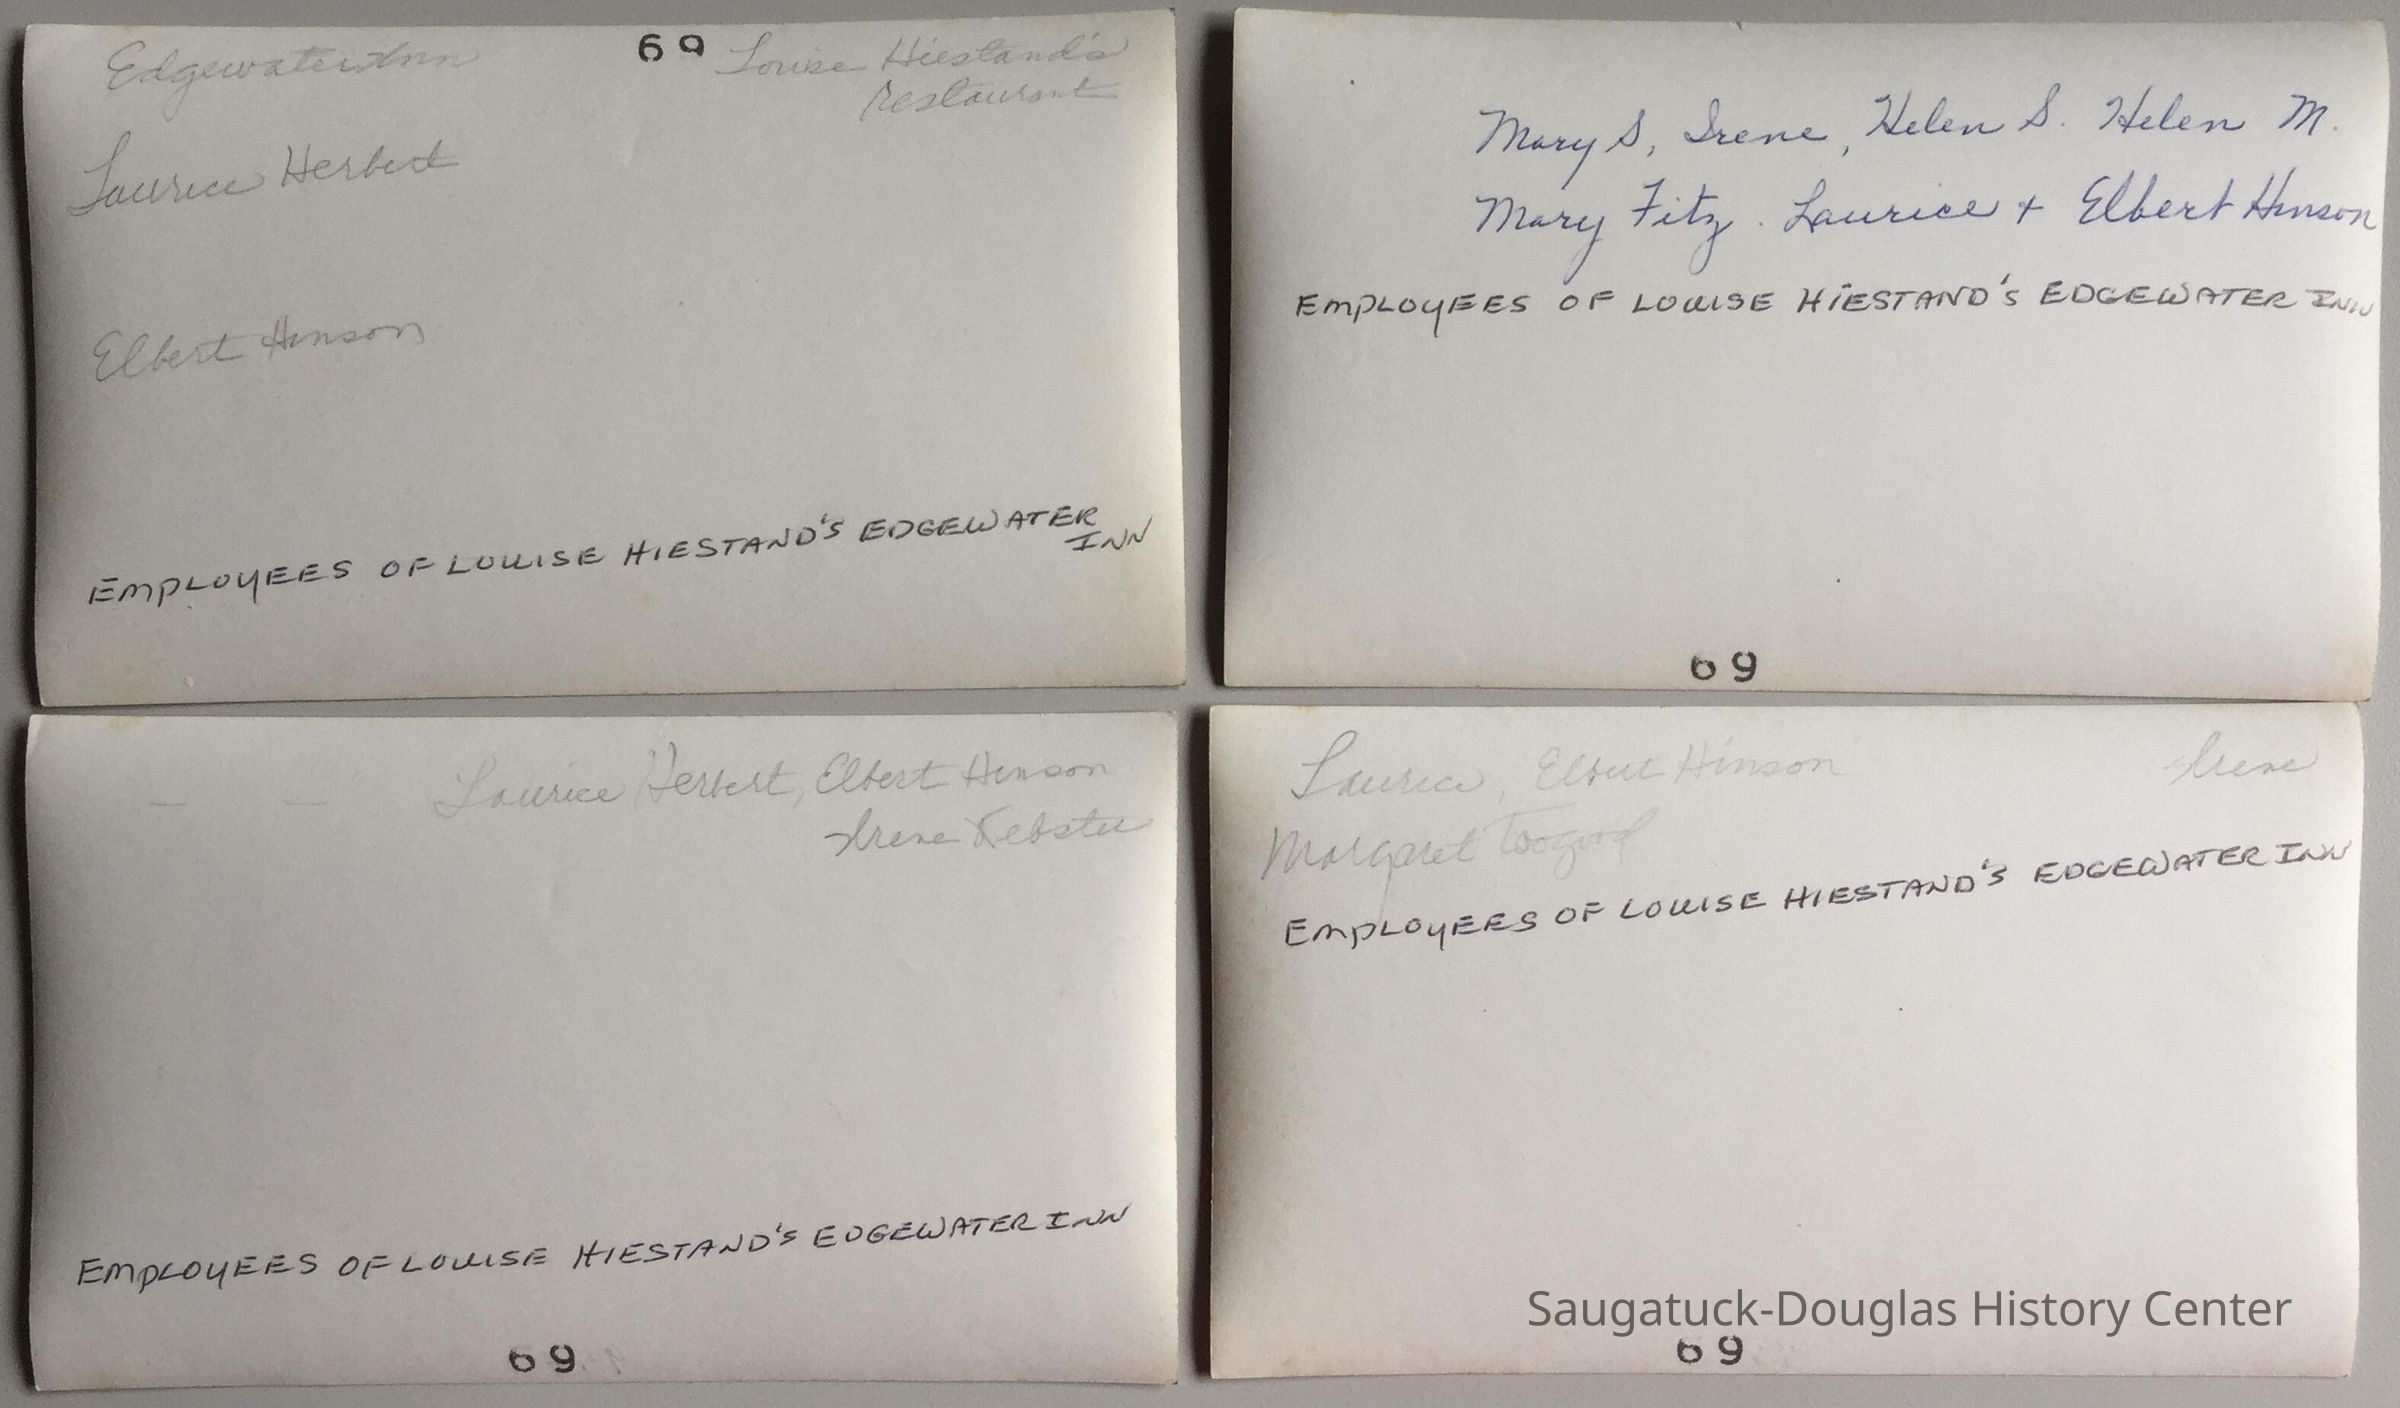 Edgewater Inn
69
Louise Hiestand's
restaurant
Laurice Herbert
Elbert Hinson
EMPLOYEES OF LOUISE HIESTAND'S EDGEWATER
INN
Mary S, Irene, Helen S. Helen M.
Mary Fitz. Laurice + Elbert Hinson
EMPLOYEES OF LOUISE HIESTAND'S EDGEWATER INN
69
Laurice Herbert, Elbert Hinson
Irene Webster
EMPLOYEES OF LOUISE HIESTAND'S EDGEWATER INN
69
Laurice, Elbert Hinson
Irene
Margaret
EMPLOYEES OF LOUISE HIESTAND'S EDGEWATER INN
Saugatuck-Douglas History Center
69